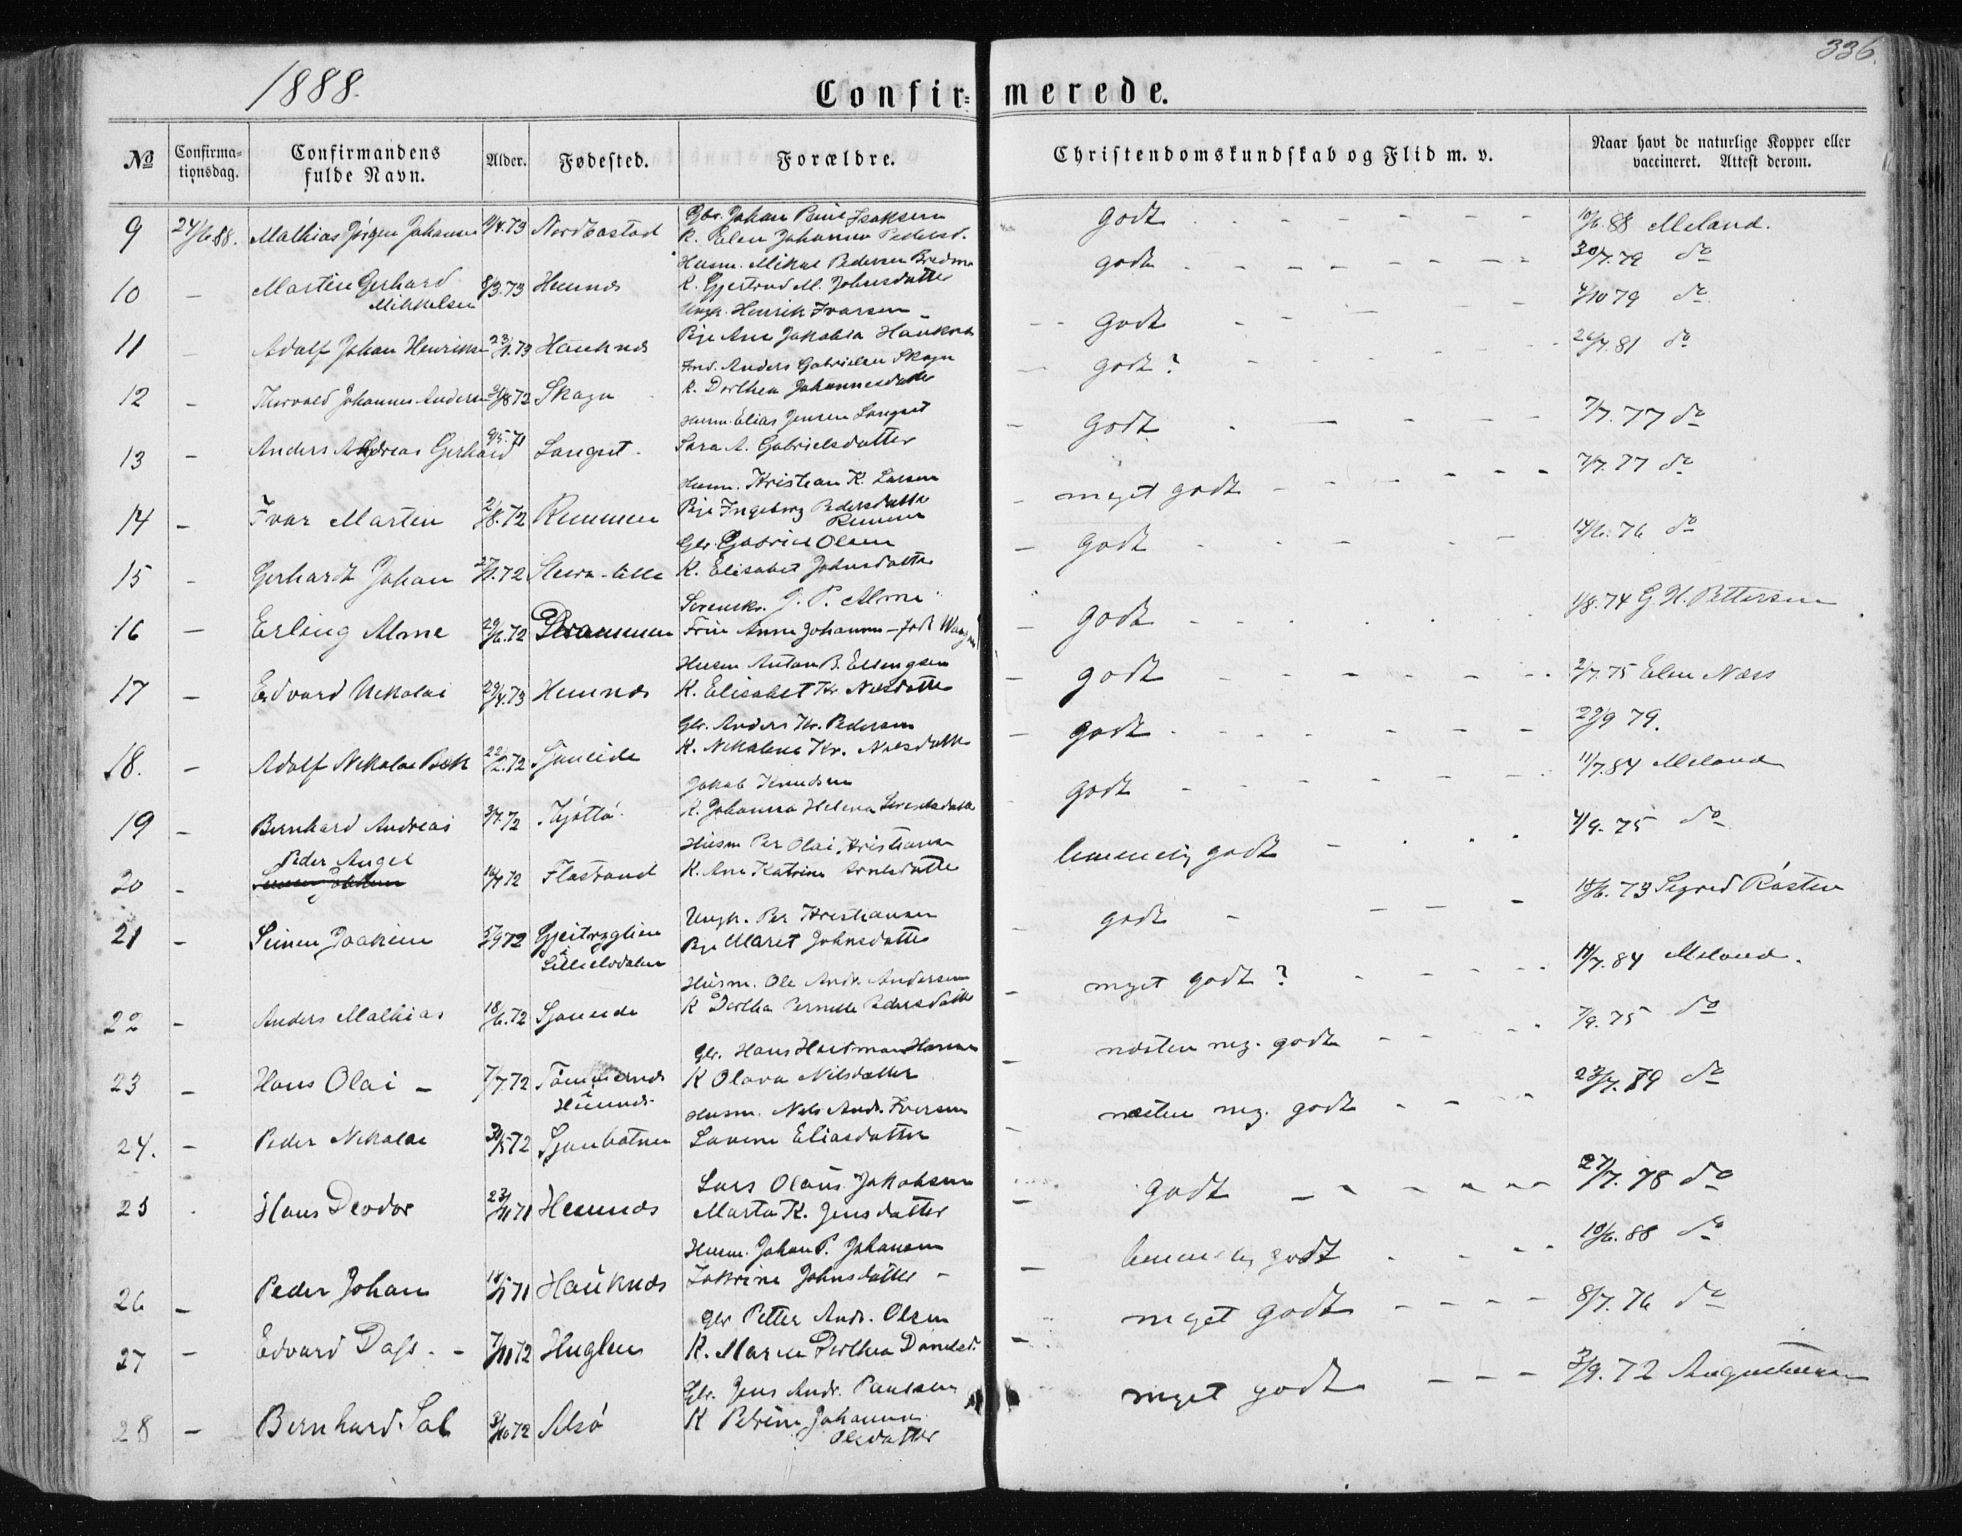 336.
1888.
Confir=merede.
№ Confirma=tionsdag. Confirmandens fulde Navn. Alder. Fødested. Forældre. Christendomskundskab og Flid m. v. Naar havt de naturlige Kopper eller vaccineret. Attest derom.
Gbr. Johan Isaksen
9 24/6 88. Mathias Jørgen Johansen /4.73 K. Elen Johanna Pedersd. godt - - - 10/6.88 Meland.
Husm. Mikal Pedersen
10 - Martin Gerhard Mikkelsen 8/3.73 Hemnæs K. Gjertrud M. Johnsdatter godt - - - 30/7.79 do
Ungk. Henrik Ivarsen
11 Adolf Johan Henriksen 23/1.73 Hauknes Pige Ane Jakobia Hauknes godt - - - 4/10 79 do
Anders Gabrielsen Skagen
12 - Thorvald Johannes Andersen /8 72 Skagen K. Dorthea Johannesdatter godt? 26/7.81 do
Husm. Elias Jensen Langset
13 - Anders Andreas Gerhard 9/5.71 Langset. Sara A. Gabrielsdatter godt. - - - 7/7.77 do
Husm. Kristian K. Larsen
14 - Ivar Martin 2/8.72 Remmen Pige Ingeborg Pedersdatter Remmen meget godt - - - 7/7.77 do
Gbr. Gabriel Olsen
15 - Gerhardt Johan 27/1.72 K. Elisabet Johnsdatter godt - - - 14/6.76 do
Sorenskr. J. P. Alme
16 - Erling Alme 29/6.72 Drammen Frue Anna Johanna - født godt - - - 1/8.74 G. H. Pettersen
Husm Anton B. Ellingsen
17 - Edvard Nikolai 29/4.73 Hemnæs K. Elisabet Kr. Nilsdatter godt - - - 2/7.75 Elen Næss
Gbr. Anders Kr. Pedersen
18. - Adolf Nikolai Bech 22/2.72 Sjoneide K. Nikoline Kr. Nilsdatter godt - - - 29/9 79.
Jakob Knudsen
19 - Bernhard Andreas 3/7.72 Tjøtta. K. Johanna Helena godt - - - 11/7.84 Meland
Husm Per Olai Kristiansen
20 - Peder Angel 16/4 72 Flostrand K. Ane Katrine Arntsdatter temmelig godt - - - 4/9.75 do
Ungk. Per Kristiansen
21 - Simen Joakim 5/9 72 Gjeitryglien Lillelvdalen Pige Maret Johnsdatter godt - - - 18/6.73 Sigrid Røsten
Husm. Ole Andr. Andersen
22 - Anders Mathias 18/6.72 Sjoneide K Dorthea Pernille Pedersdatter meget godt? - - - 11/7.84 Meland.
Gbr. Hans Hartman Hansen
23 - Hans Olai - 7/7.72 Tømmernes Hemnæs K Olava Nilsdatter næsten meg. godt - - - 7/9.75 do
Husm. Nils Andr. Iversen
24. - Peder Nikolai 31/5 72 Sjonbotnen Lavine Eliasdatter næsten meg. godt - - - 23/7.79 do
Lars Olaus Jakobsen
25 . Hans Deodor 23/11 71 Hemnæs Marta K. Jensdatter godt - - - 27/7.78 do
Husm. Johan P. Johansen
26 - Peder Johan 18/1 71 Hauknæs Jakrine Johnsdatter - temmelig godt - - - 10/6.88 do
Gbr Petter Andr. Olsen
27 - Edvard Dass. - 7/11 72 Huglen K. Maren Dorthea Danielsd. meget godt - - - 8/7.76 do
Gbr. Jens Andr. Paulsen
28 - Bernhard Sal 3/10 72 Alsø K Petrine Johanna Olsdatter meget godt - - - 3/9.72 Augustinusen